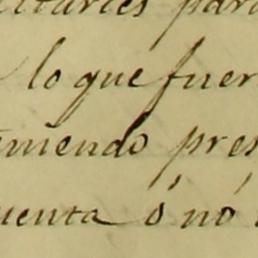 litares para
lo que fuer
niendo pres
uenta ó nó